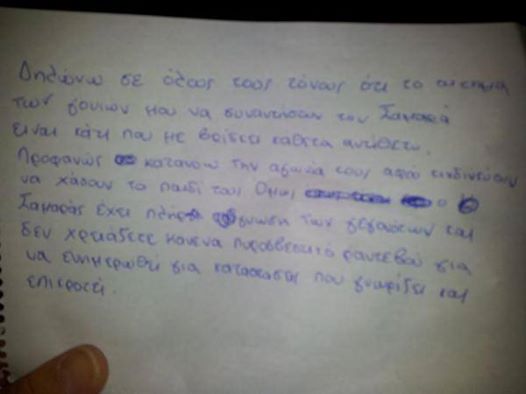 Δηλώνω σε όλους τους τόνους ότι το αίτημα
των γονιων μου να συναντησουν τον Σαμαρά
ειναι κάτι που με βρίσκει καθετα αντίθετο.
Προφανώς κατανοω την αγωνία τους αφού κινδυνεύουν
να χάσουν το παιδί τους Όμως ο
Σαμαράς έχει πλήρη γνωση των γεγονότων και
δεν χρειάζεται κανενα πυροσβεστικό ραντεβού για
να ενημερωθεί για καταστασεις που γνωρίζει και
επικροτεί.